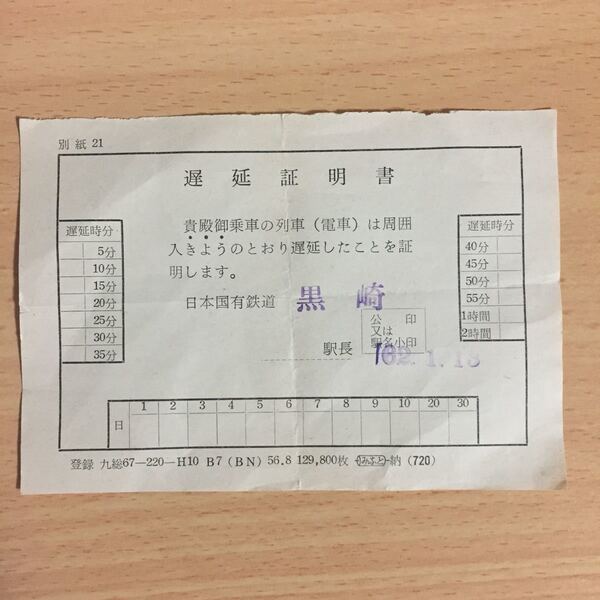 別紙 21
遅延証明書
貴殿御乗車の列車（電車）は周囲
入きようのとおり遅延したことを証
明します。
日本国有鉄道 黒崎
公印
又は
駅名小印
駅長
62.1.13
遅延時分
5分
10分
15分
20分
25分
30分
35分
遅延時分
40分
45分
50分
55分
1時間
2時間
1 2 3 4 5 6 7 8 9 10 20 30
日
登録 九総67—220—H10 B7 (BN) 56.8 129,800枚 納 (720)